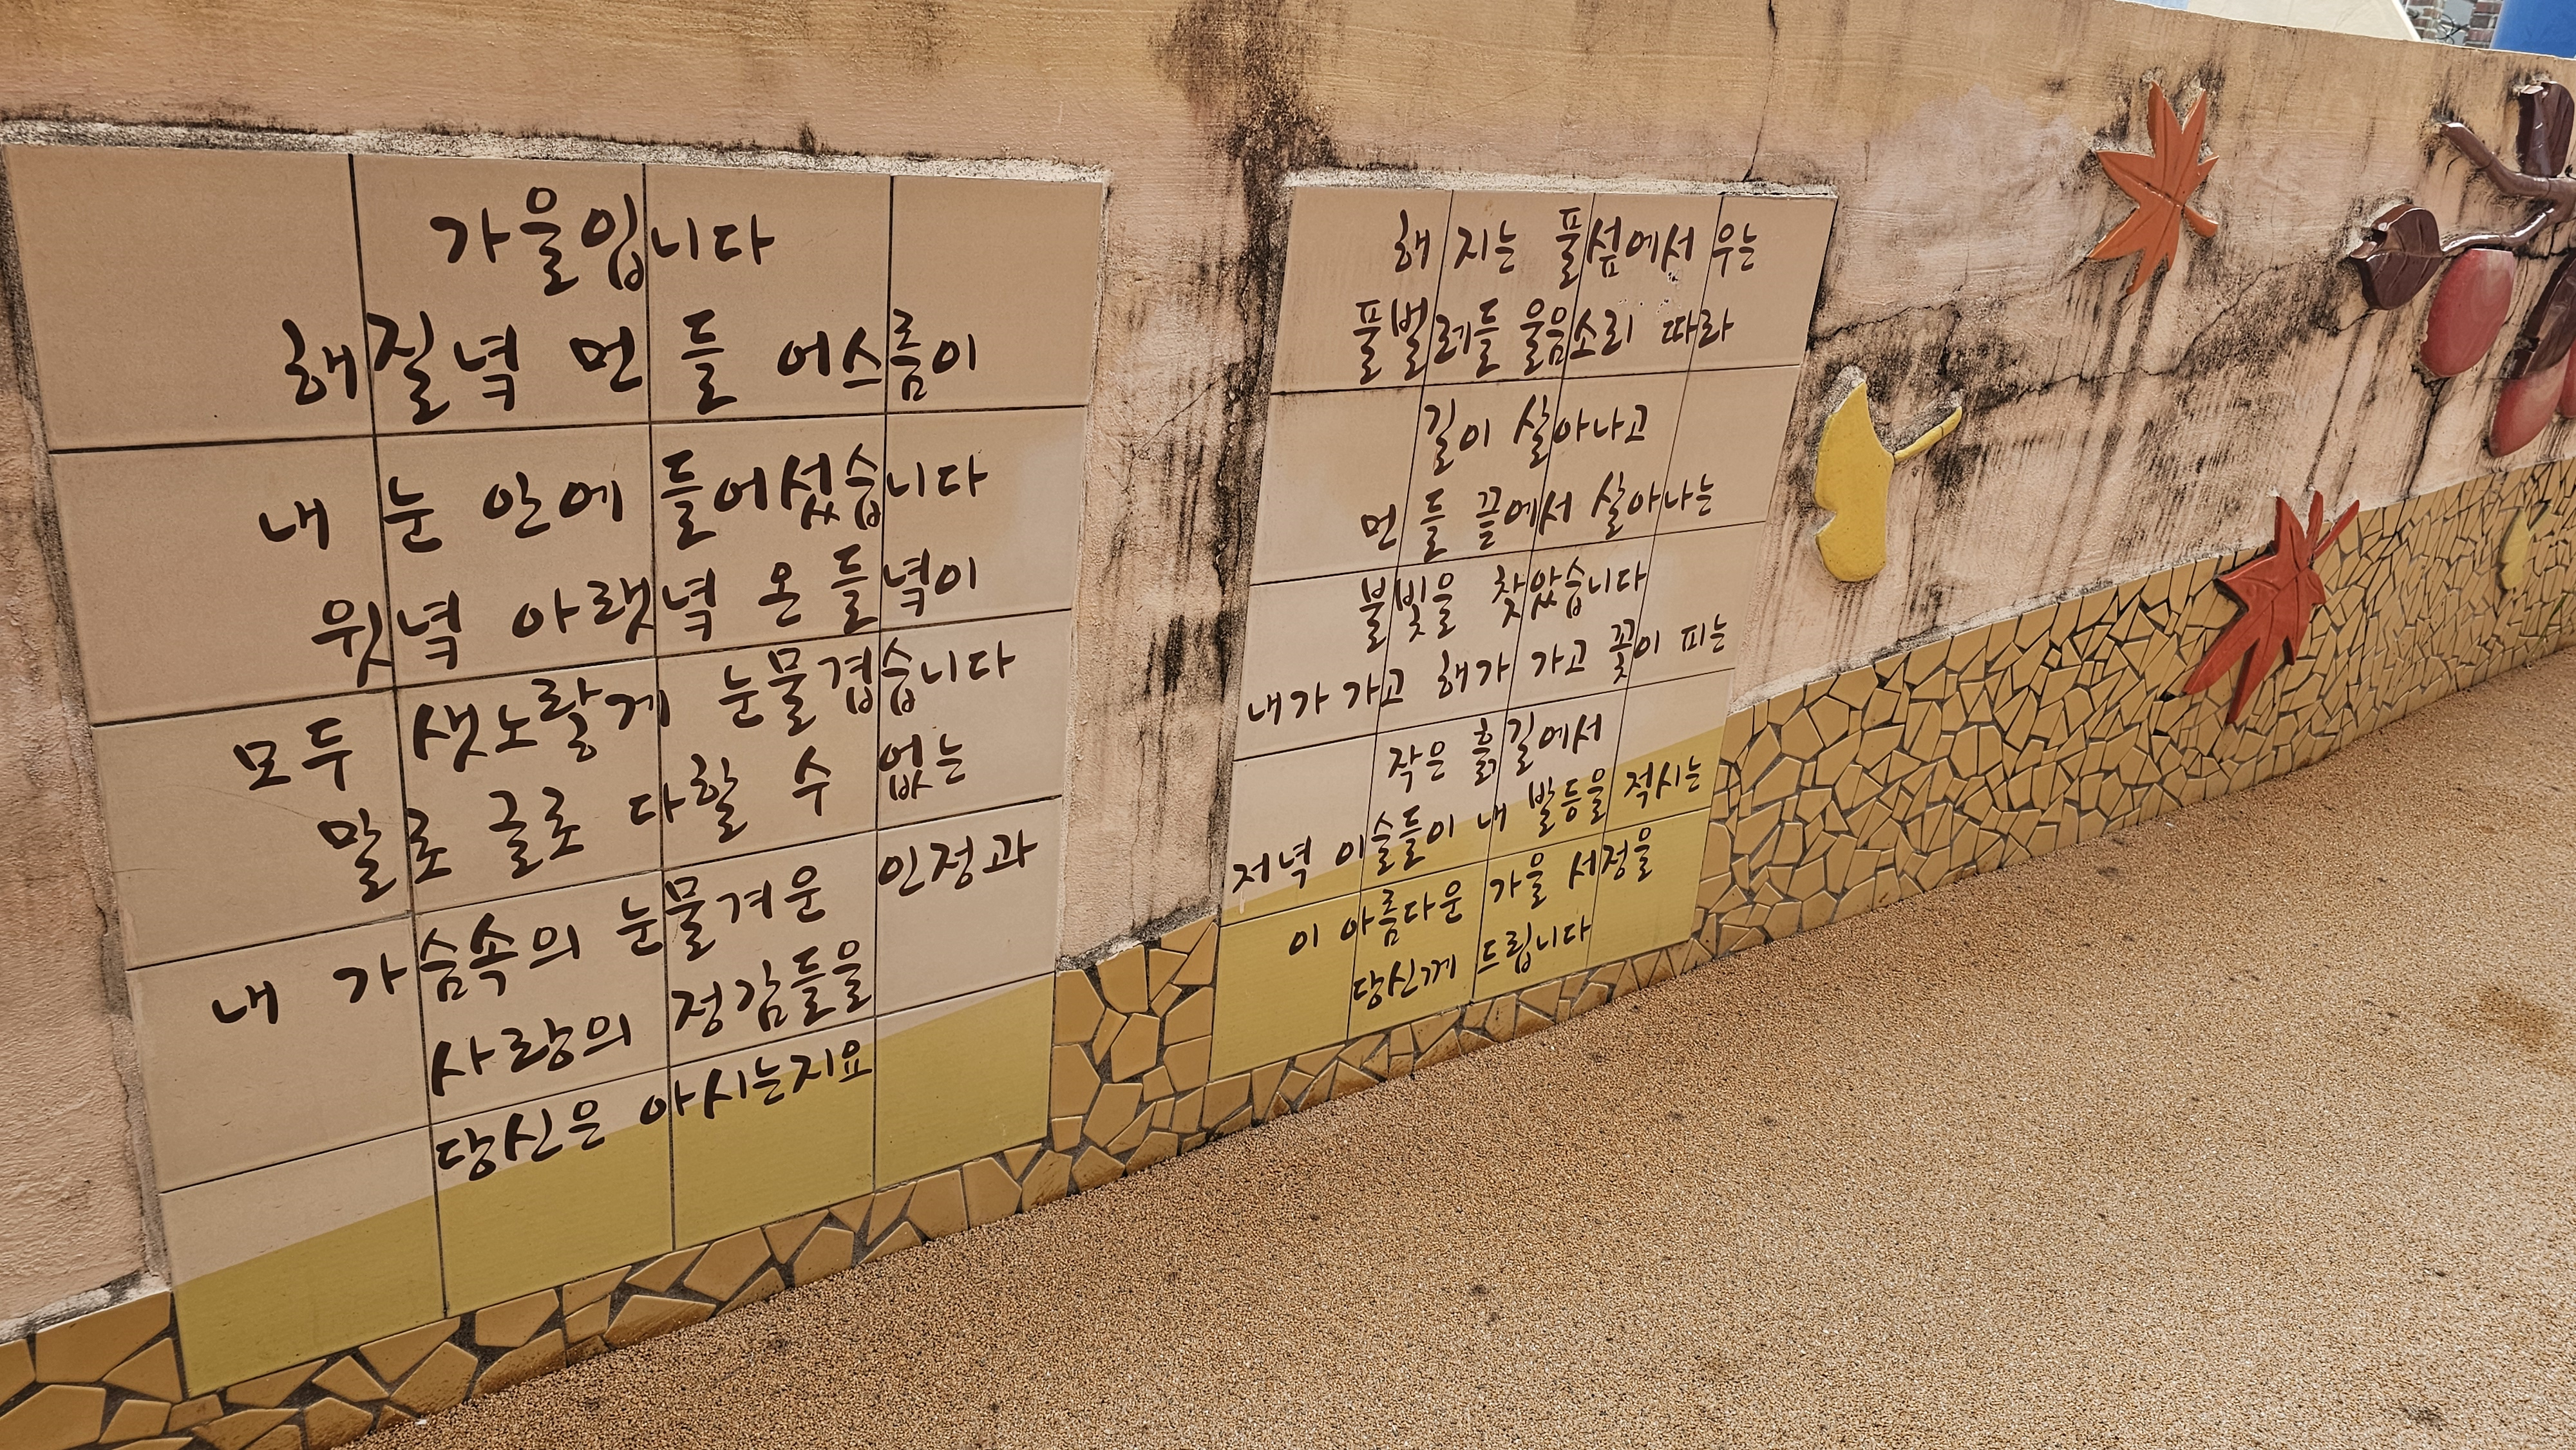 가을입니다
해질녘 먼 들 어스름이
내 눈 안에 들어섰습니다
윗녘 아랫녘 온 들녘이
모두 샛노랗게 눈물겹습니다
말로 글로 다할 수 없는
내 가슴속의 눈물겨운 인정과
사랑의 정감들을
당신은 아시는지요
해 지는 풀섶에서 우는
풀벌레들 울음소리 따라
길이 살아나고
먼 들 끝에서 살아나는
불빛을 찾았습니다
내가 가고 해가 가고 꽃이 피는
작은 흙길에서
저녁 이슬들이 내 발등을 적시는
이 아름다운 가을 서정을
당신께 드립니다